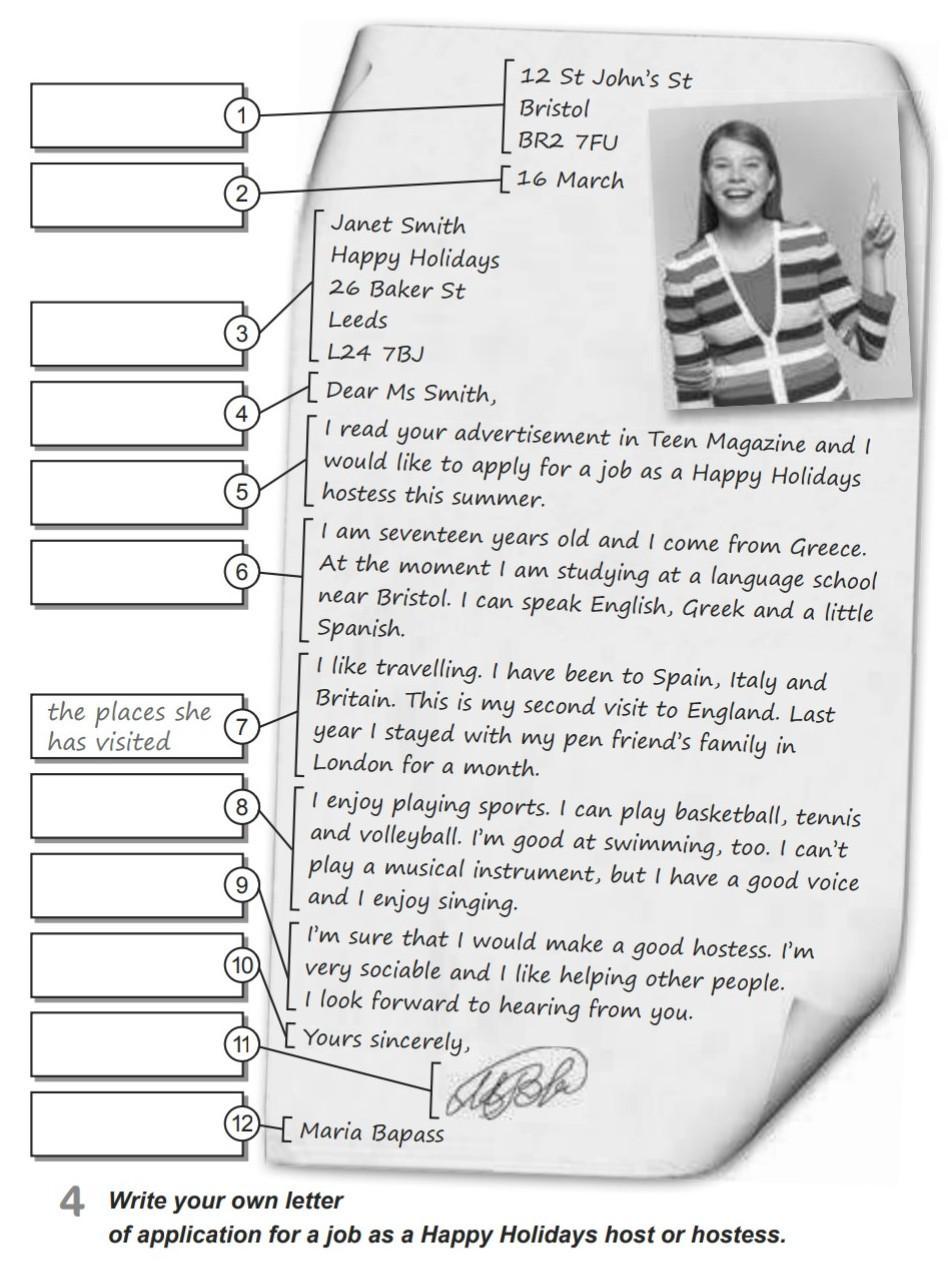 1
12 St John's St
Bristol
BR2 7FU
2
16 March
3
Janet Smith
Happy Holidays
26 Baker St
Leeds
L24 7BJ
4
Dear Ms Smith,
5
I read your advertisement in Teen Magazine and I
would like to apply for a job as a Happy Holidays
hostess this summer.
6
I am seventeen years old and I come from Greece.
At the moment I am studying at a language school
near Bristol. I can speak English, Greek and a little
Spanish.
the places she
has visited
7
I like travelling. I have been to Spain, Italy and
Britain. This is my second visit to England. Last
year I stayed with my pen friend's family in
London for a month.
8
I enjoy playing sports. I can play basketball, tennis
and volleyball. I'm good at swimming, too. I can't
play a musical instrument, but I have a good voice
and I enjoy singing.
9
I'm sure that I would make a good hostess. I'm
very sociable and I like helping other people.
I look forward to hearing from you.
10
Yours sincerely,
11
12
Maria Bapass
4 Write your own letter
of application for a job as a Happy Holidays host or hostess.